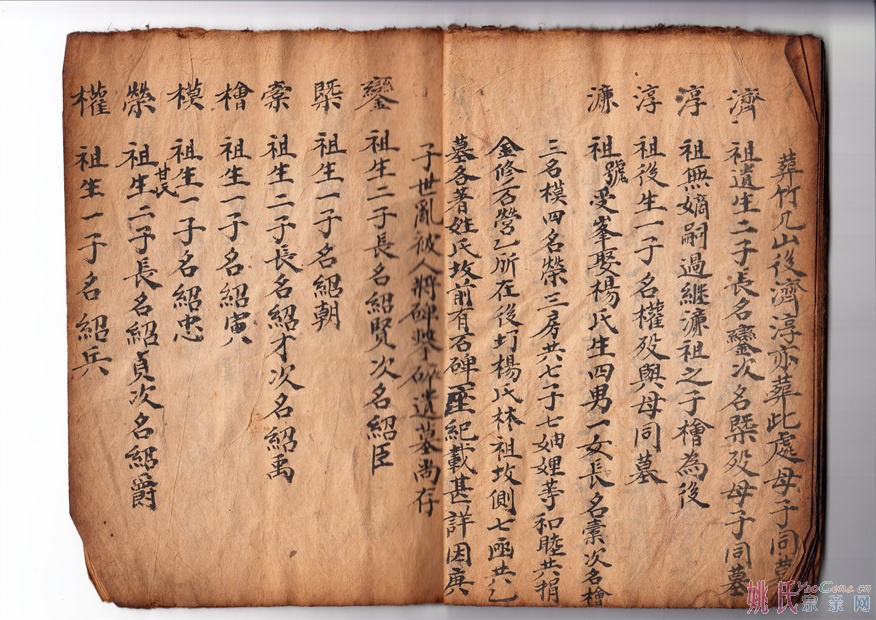 葬竹几山後濟淳亦葬此處母子同
濟 祖遺生二子長名鑾次名槩歿母子同墓
淳 祖無嫡嗣過継濂祖之子檜為後
淳 祖後生一子名權歿與母同墓
濂 祖號受峯娶楊氏生四男一女長名橐次名檜
三名模四名榮三房共七子七妯娌䓁和睦共捐
金修石塋乙所在後圢楊氏林祖坟側七函共乙
墓各著姓氏坟前有石碑一座紀載甚詳因
子世亂被人將碑墓尚存
鑾 祖生二子長名紹賢次名紹臣
槩 祖生一子名紹朝
橐 祖生二子長名紹才次名紹禹
檜 祖生一子名紹寅
模 祖生一子名紹忠
榮 祖甘氏生二子長名紹貞次名紹爵
權 祖生一子名紹兵
姚氏宗亲网
YaoGens.cn